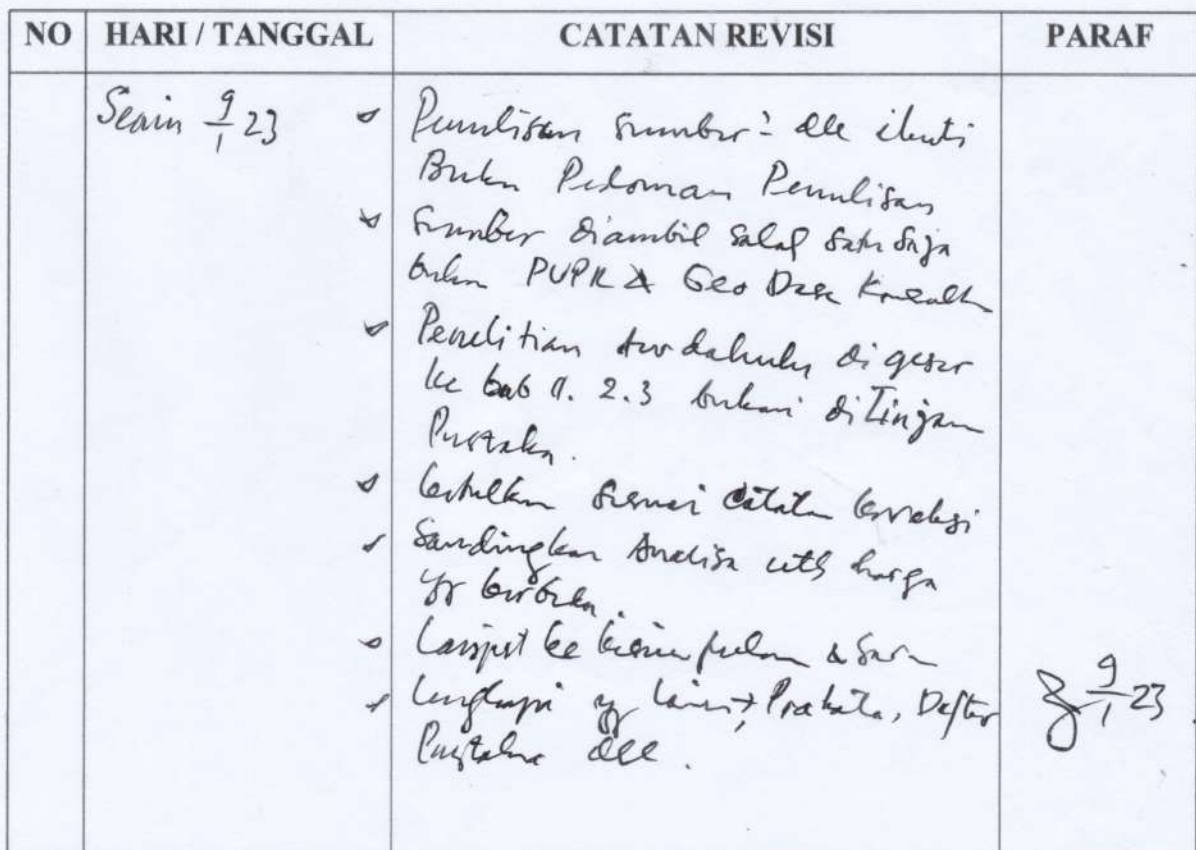 NO HARI / TANGGAL CATATAN REVISI PARAF
Senin 9/1 23
Penulisan sumber² dll ikuti
Buku Pedoman Penulisan
Sumber diambil salah satu saja
bukan PUPR & Geo Dasa
Penelitian terdahulu digeser
ke bab II. 2.3 bukan di Tinjauan
Pustaka.
betulkan sesuai catatan koreksi
Sandingkan Analisa harga
yg berbeda.
Lanjut ke kesimpulan & saran
Lengkapi yg lain → Prakata, Daftar
Pustaka dll.
9/1 23